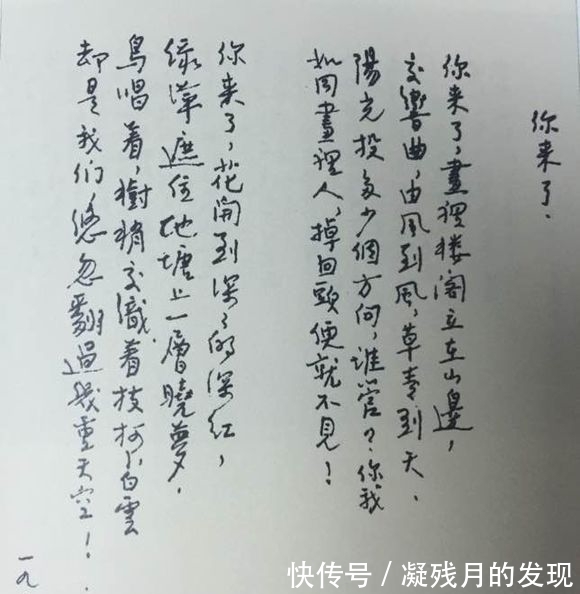 你来了.
你来了,畫裡楼阁立在山邊,
交響曲,由風到風,草青到天、
陽光投多少個方向,誰管?你,我
如同畫裡人,掉回頭便就不見!
你来了,花開到深〻的深红,
绿萍遮住池塘上一層曉夢,
鳥唱着,樹梢交織着枝柯,白雲
却是我们悠忽翻過幾重天空!
一九
快传号 / 凝残月的发现